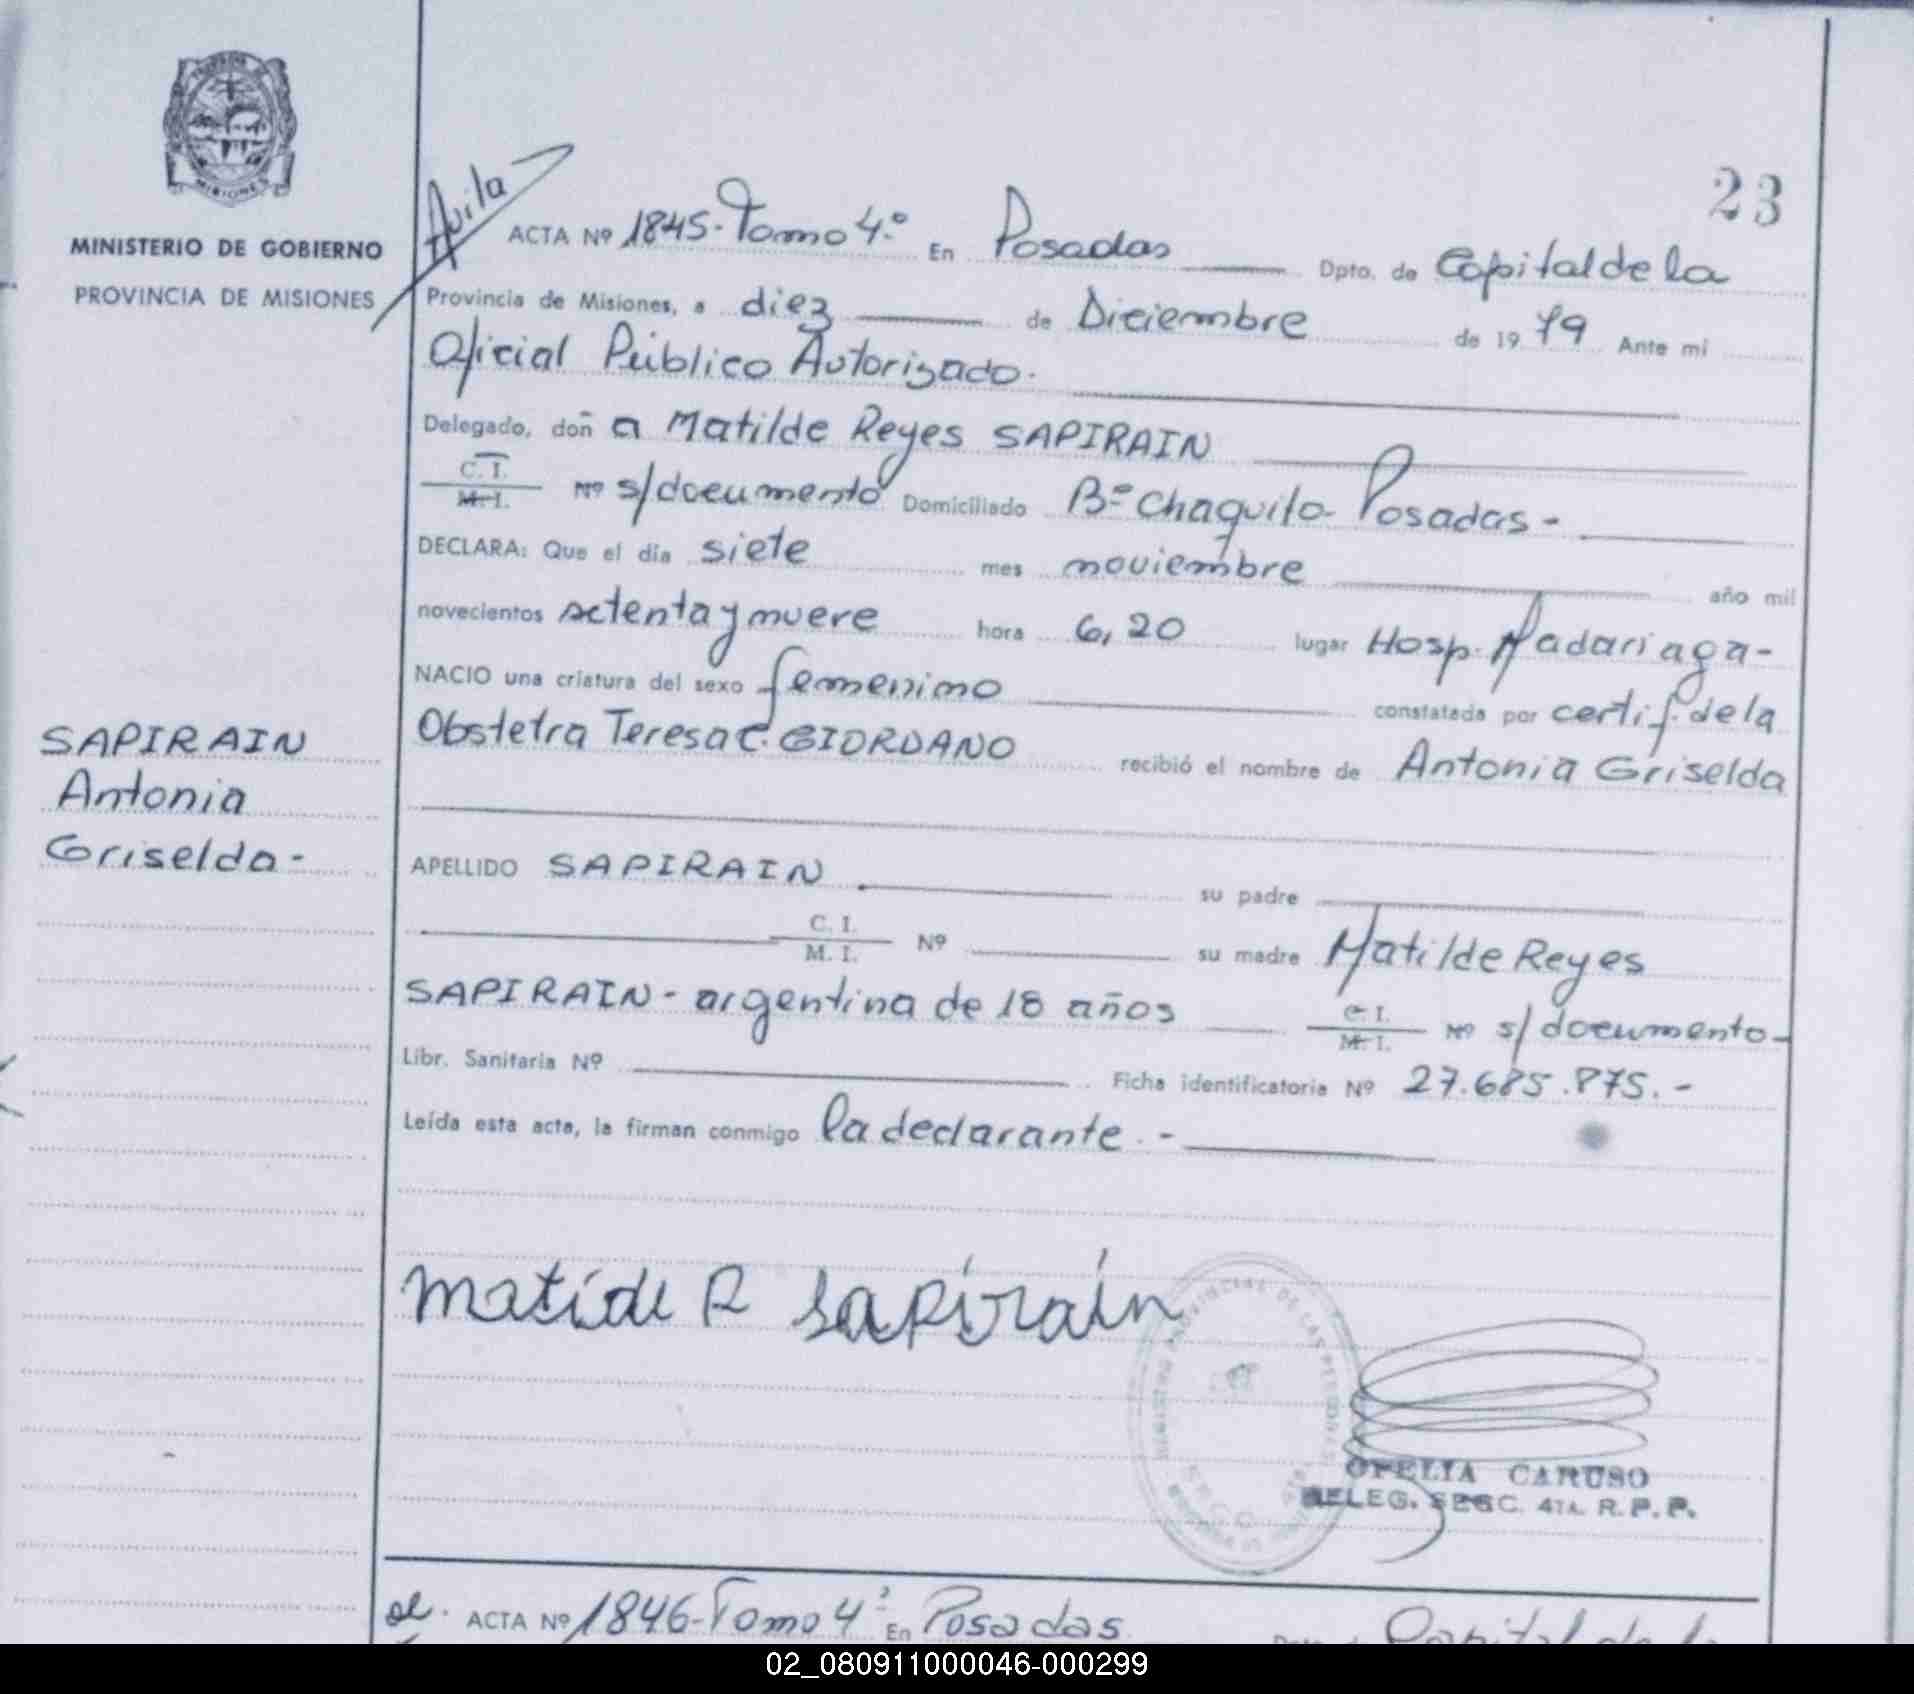 23
MISIONES
MINISTERIO DE GOBIERNO
PROVINCIA DE MISIONES
Avila
ACTA Nº 1845-Tomo 4.º En Posadas Dpto. de Capital de la
Provincia de Misiones, a diez de Diciembre de 19 79 Ante mi
Oficial Público Autorizado.
Delegado, doñ a Matilde Reyes SAPIRAIN
C. I.
M. I. Nº s/documento Domiciliado Bº Chaquito- Posadas-
DECLARA: Que el día siete mes noviembre año mil
novecientos setenta y nueve hora 6,20 lugar Hosp. Madariaga-
NACIO una criatura del sexo femenino constatada por certif. de la
Obstetra Teresa C. GIORDANO recibió el nombre de Antonia Griselda
SAPIRAIN
Antonia
Griselda-
APELLIDO SAPIRAIN su padre
C. I.
M. I. Nº su madre Matilde Reyes
SAPIRAIN - argentina de 18 años C. I.
M. I. Nº s/documento-
Libr. Sanitaria Nº Ficha identificatoria Nº 27.685.875.-
Leída esta acta, la firman conmigo la declarante.-
Matide R Sapirain
OFELIA CARUSO
DELEG. SECC. 4TA. R.P.P.
ACTA Nº 1846-Tomo 4º En Posadas Capital de la
02_080911000046-000299